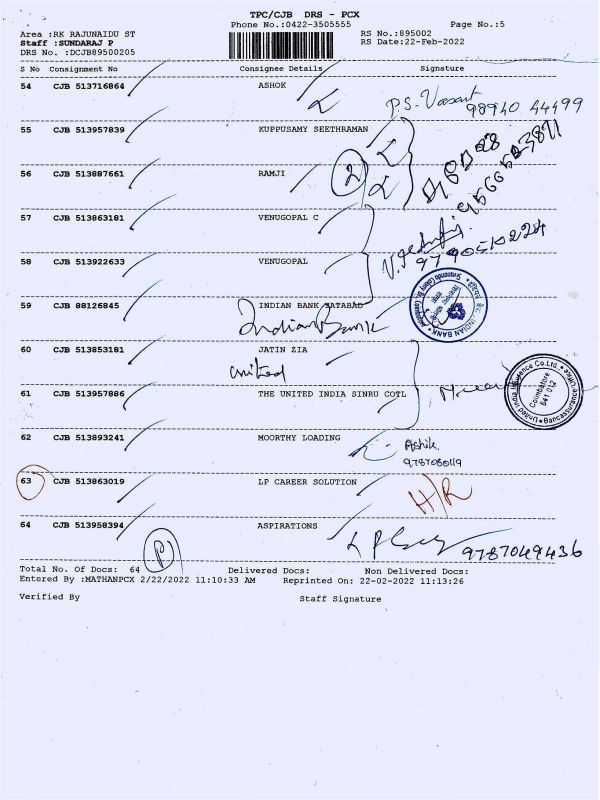 TPC/CJB DRS - PCX
Phone No.:0422-3505555 Page No.:5
Area :RK RAJUNAIDU ST RS No.:895002
Staff :SUNDARAJ P RS Date:22-Feb-2022
DRS No. :DCJB89500205
S No Consignment No Consignee Details Signature
54 CJB 513716864 ASHOK
P.S. Vasant
98940 44499
55 CJB 513957839 KUPPUSAMY SEETHRAMAN
56 CJB 513887661 RAMJI
2
57 CJB 513863181 VENUGOPAL C
9790510224
58 CJB 513922633 VENUGOPAL
59 CJB 88126845 INDIAN BANK
Indian Bank
INDIAN BANK
60 CJB 513853181 JATIN ZIA
united
61 CJB 513957886 THE UNITED INDIA SINRU COTL
United India Insurance Co.Ltd.
Coimbatore
641 012
62 CJB 513893241 MOORTHY LOADING
Ashik
9787080119
63 CJB 513863019 LP CAREER SOLUTION
H/R
64 CJB 513958394 ASPIRATIONS
9787049436
P
Total No. Of Docs: 64 Delivered Docs: Non Delivered Docs:
Entered By :MATHANPCX 2/22/2022 11:10:33 AM Reprinted On: 22-02-2022 11:13:26
Verified By Staff Signature